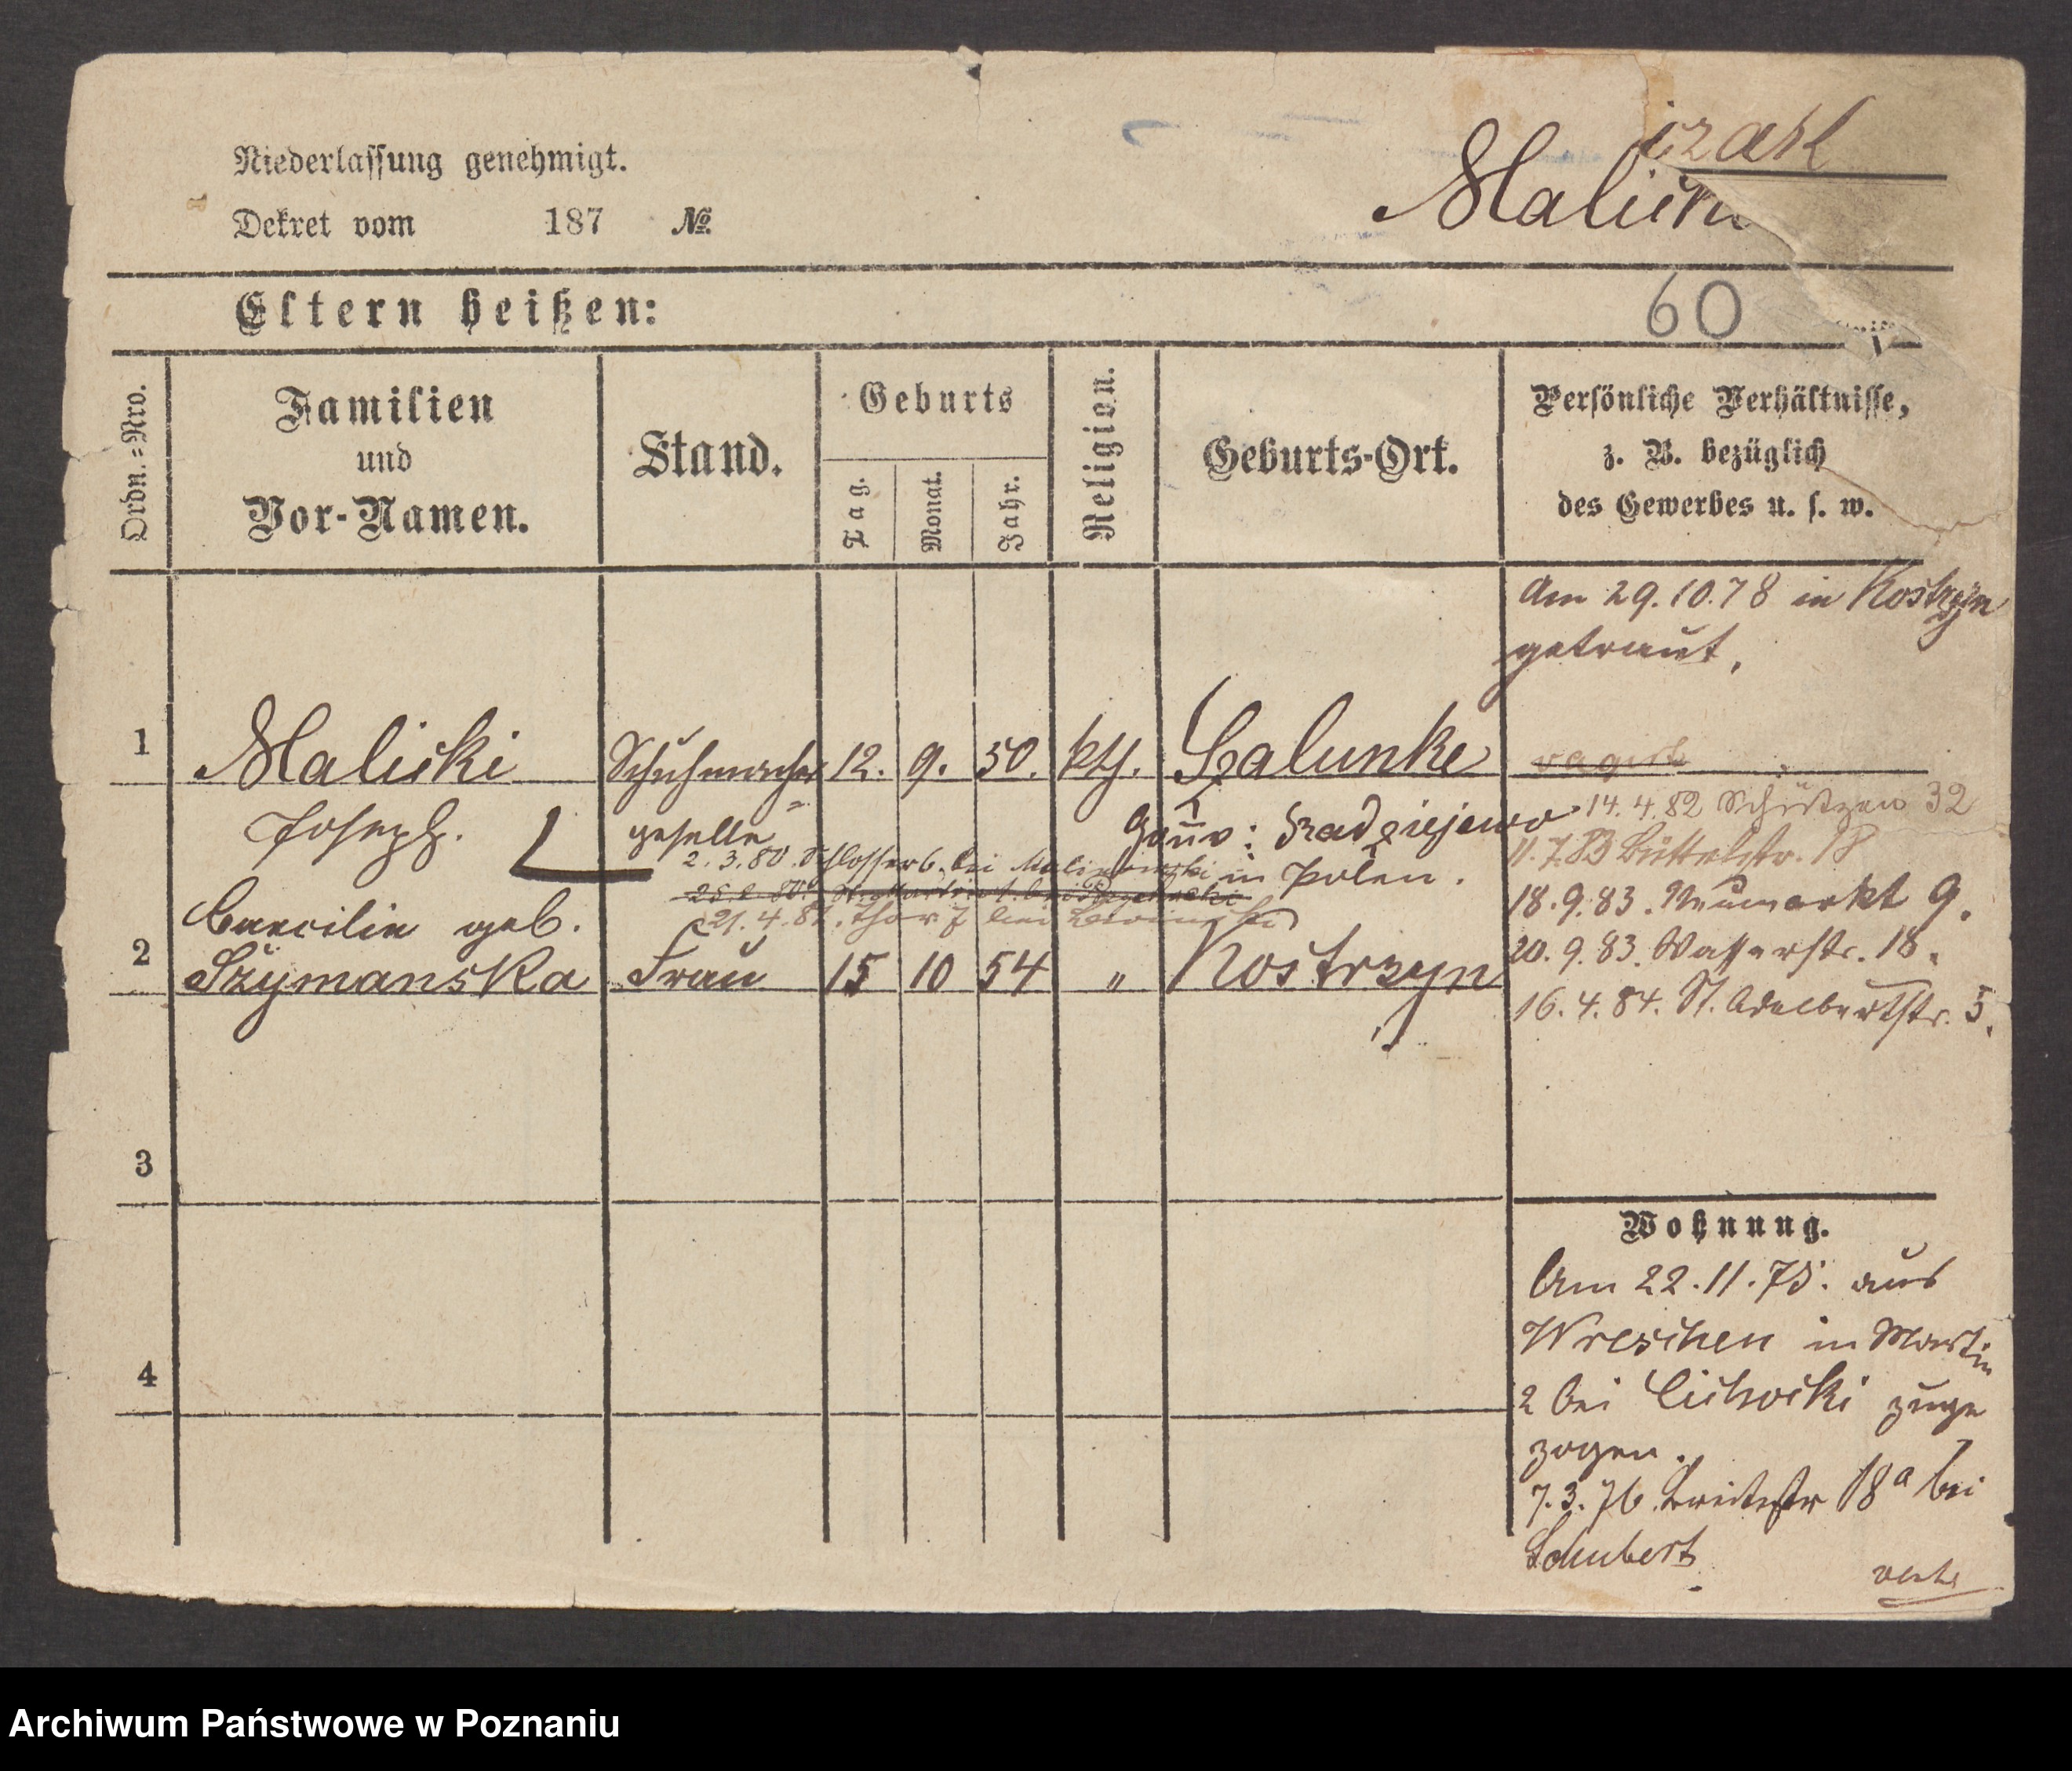 Niederlassung genehmigt.
Dekret vom 187 №
Malicki
60
Eltern heißen:
Ordn.=Nro.
Familien
und
Vor-Namen.
Stand.
Geburts
Tag.
Monat.
Jahr.
Religion.
Geburts-Ort.
Persönliche Verhältnisse,
z. B. bezüglich
des Gewerbes u. s. w.
Am 29.10.78 in Kostrzyn
getraut,
1 Malicki Schuhmacher 12. 9. 50. kth. Szalunke
Joseph. geselle
Gouv: Szadziejewo
in Polen.
2.3.80. Schlosserb. bei
21.4.81.
14.4.82 Schützen 32
11.7.83 Büttelstr. 18
18.9.83. Neumarkt 9.
20.9.83. Wasserstr. 18.
16.4.84. St. Adalbertstr. 5.
Caecilie geb.
2 Szymanska Frau 15 10 54 " Kostrzyn
3
4
Wohnung.
Am 22.11.75. aus
Wreschen in Martin
2 bei Cichocki zuge
zogen.
7.3.76. Breitestr 18a bei
Schubert
verte
Archiwum Państwowe w Poznaniu